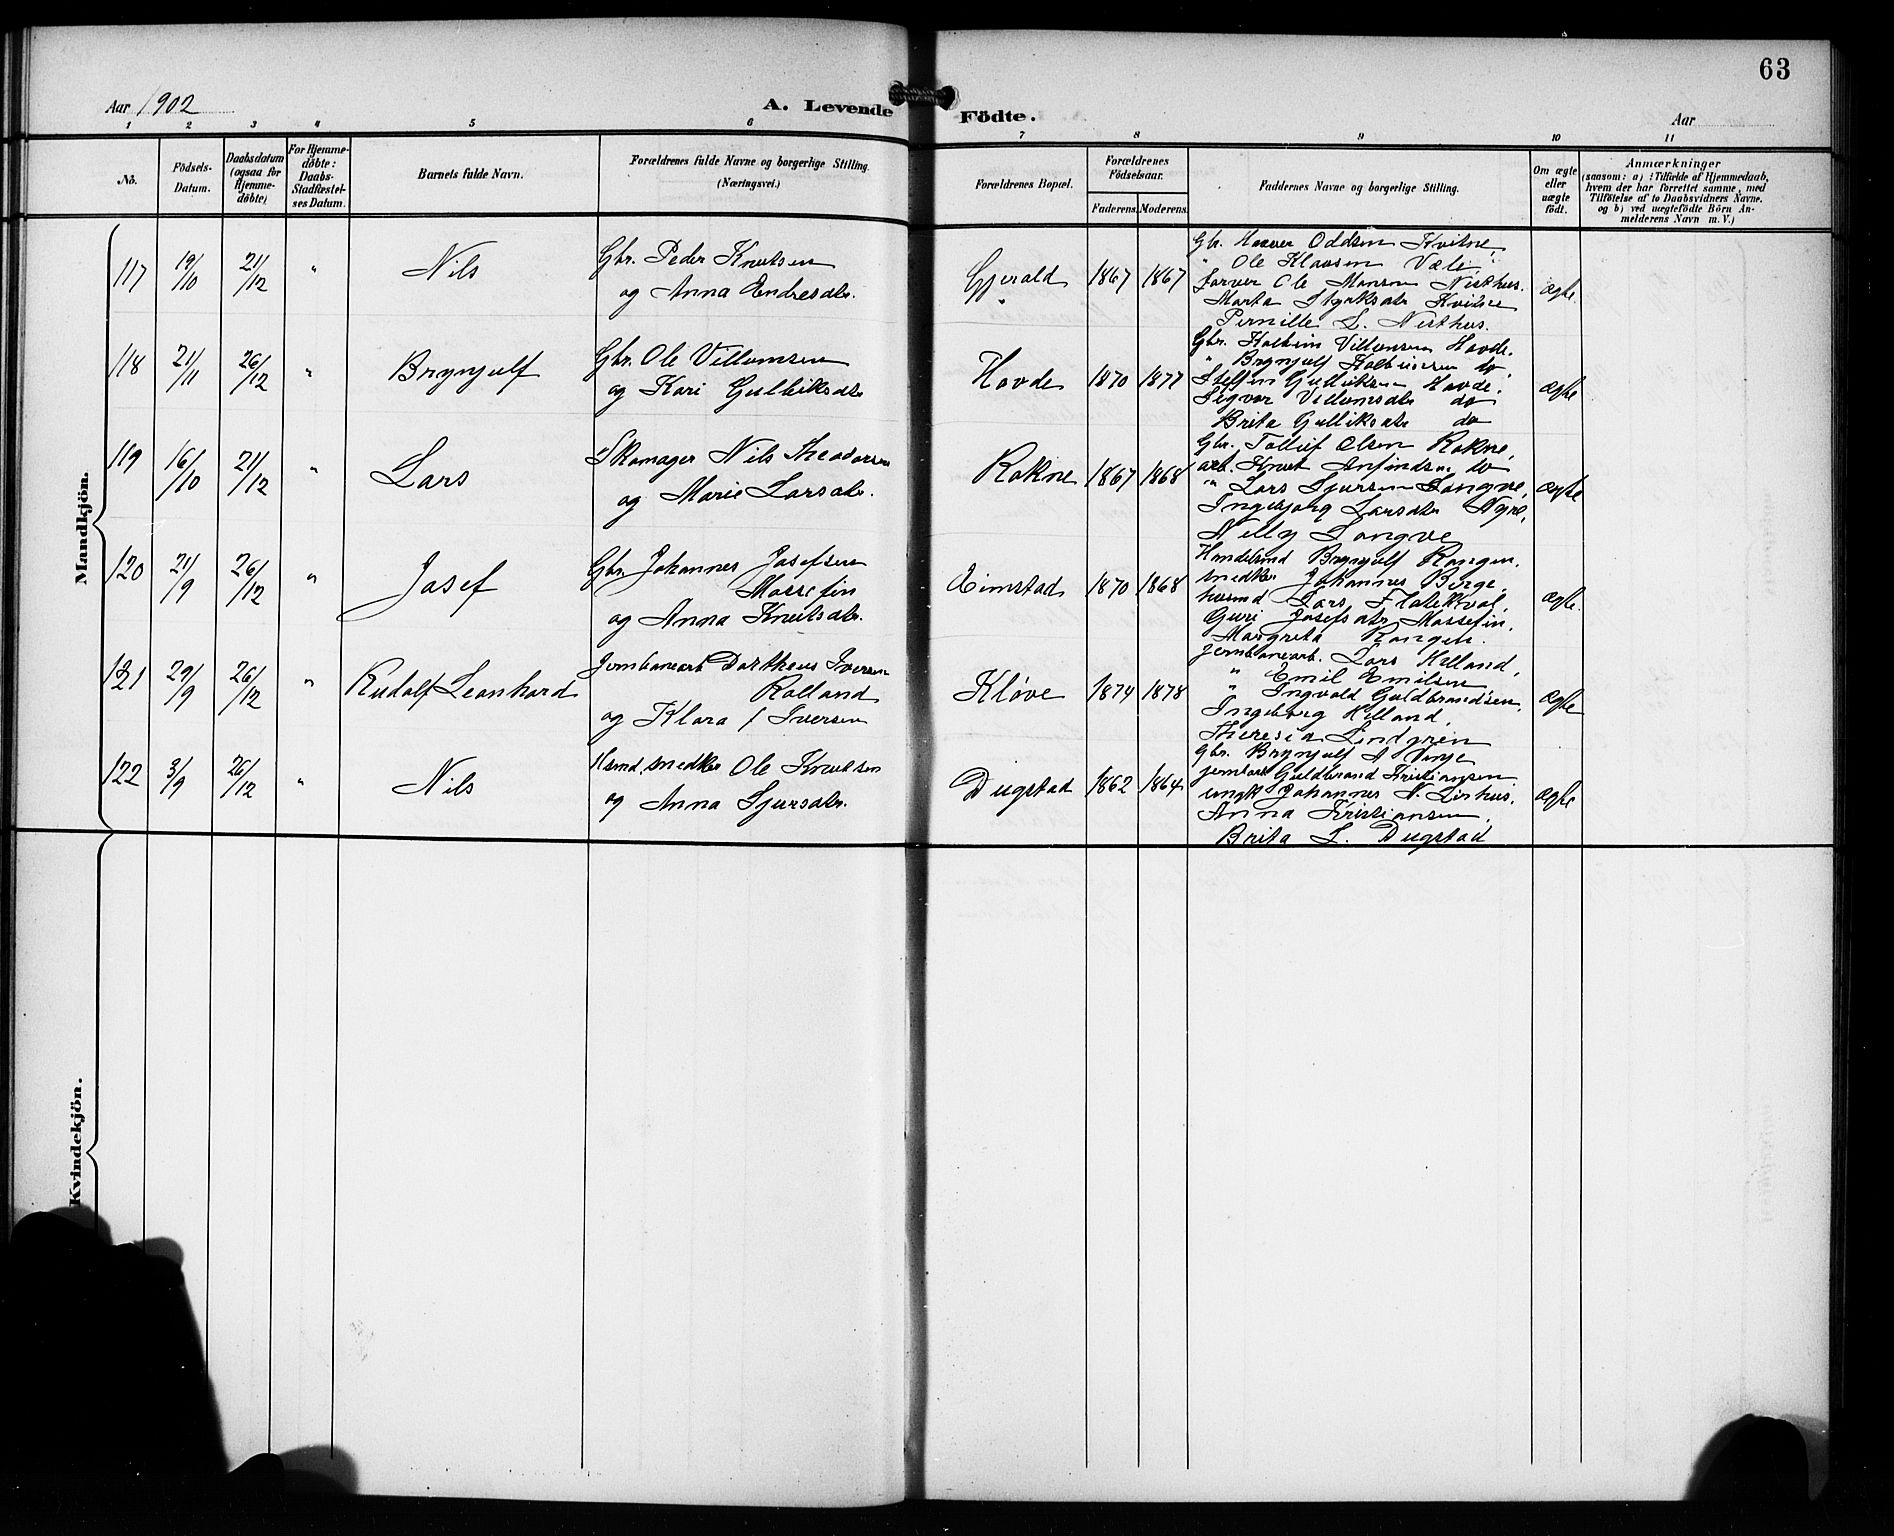 63
Aar 1902
A. Levende Födte.
Aar
1 2 3 4 5 6 7 8 9 10 11
No.
Födsels-Datum.
Daabsdatum (ogsaa for Hjemme-döbte)
For Hjemme-döbte: Daabs-Stadfæstel-ses Datum.
Barnets fulde Navn.
Forældrenes fulde Navne og borgerlige Stilling.
(Næringsvei.)
Forældrenes Bopæl.
Forældrenes Födselsaar.
Faderens. Moderens.
Faddernes Navne og borgerlige Stilling.
Om ægte eller uægte födt.
Anmærkninger
(saasom: a) i Tilfælde af Hjemmedaab,
hvem der har forrettet samme, med
Tilföielse af to Daabsvidners Navne.
og b) ved uægtefödte Börn An-
melderens Navn m. V.)
Mandkjön.
117 19/10 21/12 " Nils
Gbr. Peder Knutsen
og Anna Endresdtr.
Gjerald 1867 1867
Gbr. Haaver Oddsen Kvitne,
" Ole Klausen Væle,
Farver Ole Monsen Nesthus.
Marta Styrksdtr Kvitne
Pernille L. Nesthus.
ægte
118 21/11 26/12 " Brynjulf
Gbr. Ole Villumsen
og Kari Gulleiksdtr
Hovde 1870 1877
Gbr. Kolbein Villumsen Hovde.
" Brynjulf Kolbeinsen do,
Steffen Gulleiksen Hovde,
Sigvor Villumsdtr do
Brita Gulleiksdtr do
ægte
119 16/10 21/12 " Lars
Skomager Nils Theodorsen
og Marie Larsdtr.
Rokne 1867 1868
Gbr. Tollief Olsen Rokne,
arb. Knut Anfindsen do
" Lars Sjursen Songve,
Ingebjørg Larsdtr Nyre,
Nelly Songve
ægte
120 21/9 26/12 " Josef
Gbr. Johannes Josefsen
Mossefin
og Anna Knutsdtr.
Eimstad 1870 1868
Handelsmd Brynjulf Rongen.
snedker Johannes Berge
husmd Lars Flatekval,
Guri Josefsdtr Mossefin,
Margreta Rongen.
ægte.
121 29/9 26/12 " Rudolf Leonhard
Jernbanearb Dortheus Iversen
Rolland
og Klara f Iversen
Kløve 1874 1878
jernbanearb. Lars Helland,
" Emil Emilsen
" Ingvald Guldbrandsen,
Ingeborg Helland,
Theresia Lindgren
ægte
122 3/9 26/12 " Nils
Hsmd, snedker Ole Knutsen
og Anna Sjursdtr.
Dugstad 1862 1864
Gbr. Brynjulf A Vinje
jernbarb Guldbrand Kristiansen
ungk Johannes N. Linhus,
Anna Kristiansen,
Brita L. Dugstad
ægte
Kvindekjön.